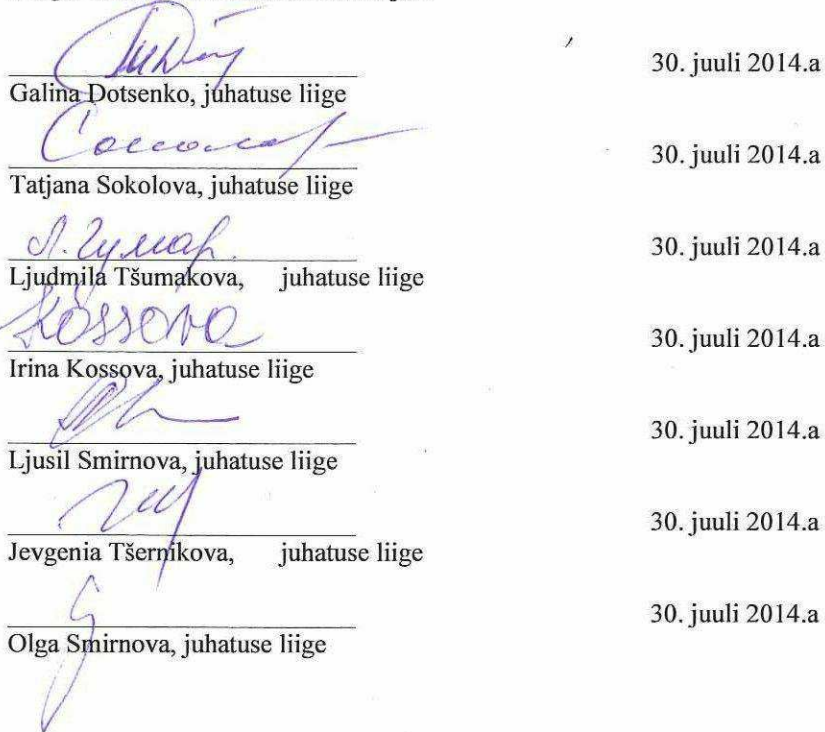 30. juuli 2014.a
Galina Dotsenko, juhatuse liige
30. juuli 2014.a
Tatjana Sokolova, juhatuse liige
30. juuli 2014.a
Ljudmila Tšumakova, juhatuse liige
Kossova
30. juuli 2014.a
Irina Kossova, juhatuse liige
30. juuli 2014.a
Ljusil Smirnova, juhatuse liige
30. juuli 2014.a
Jevgenia Tšernikova, juhatuse liige
30. juuli 2014.a
Olga Smirnova, juhatuse liige